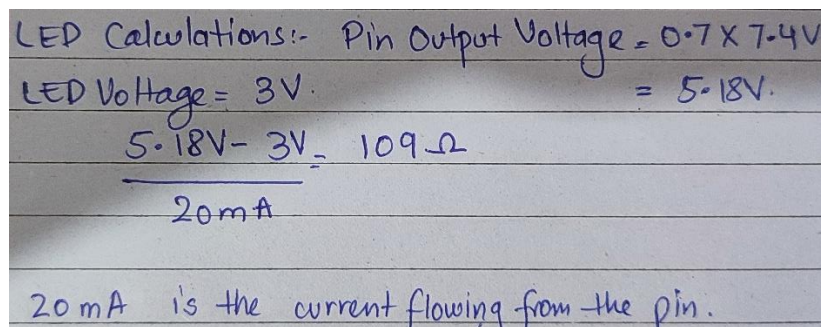 LED Calculations:- Pin Output Voltage = 0.7 X 7.4V
LED Voltage = 3V. = 5.18V.
5.18V - 3V = 109 Ω
20mA
20 mA is the current flowing from the pin.